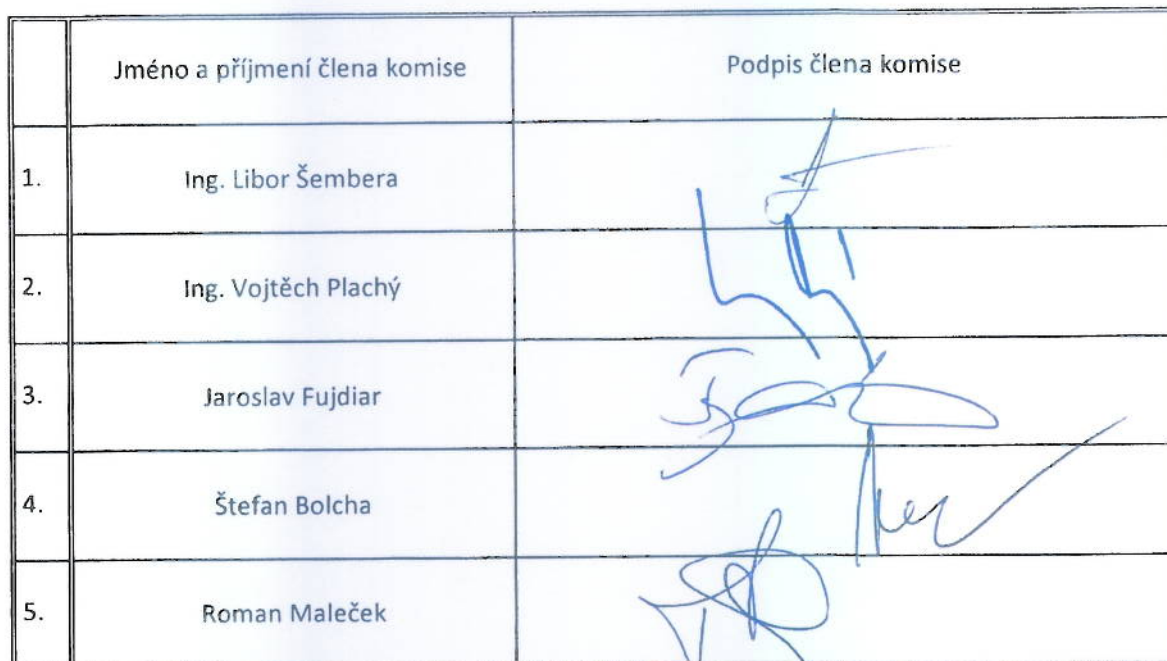 Jméno a příjmení člena komise Podpis člena komise
1. Ing. Libor Šembera
2. Ing. Vojtěch Plachý
3. Jaroslav Fujdiar
4. Štefan Bolcha
5. Roman Maleček